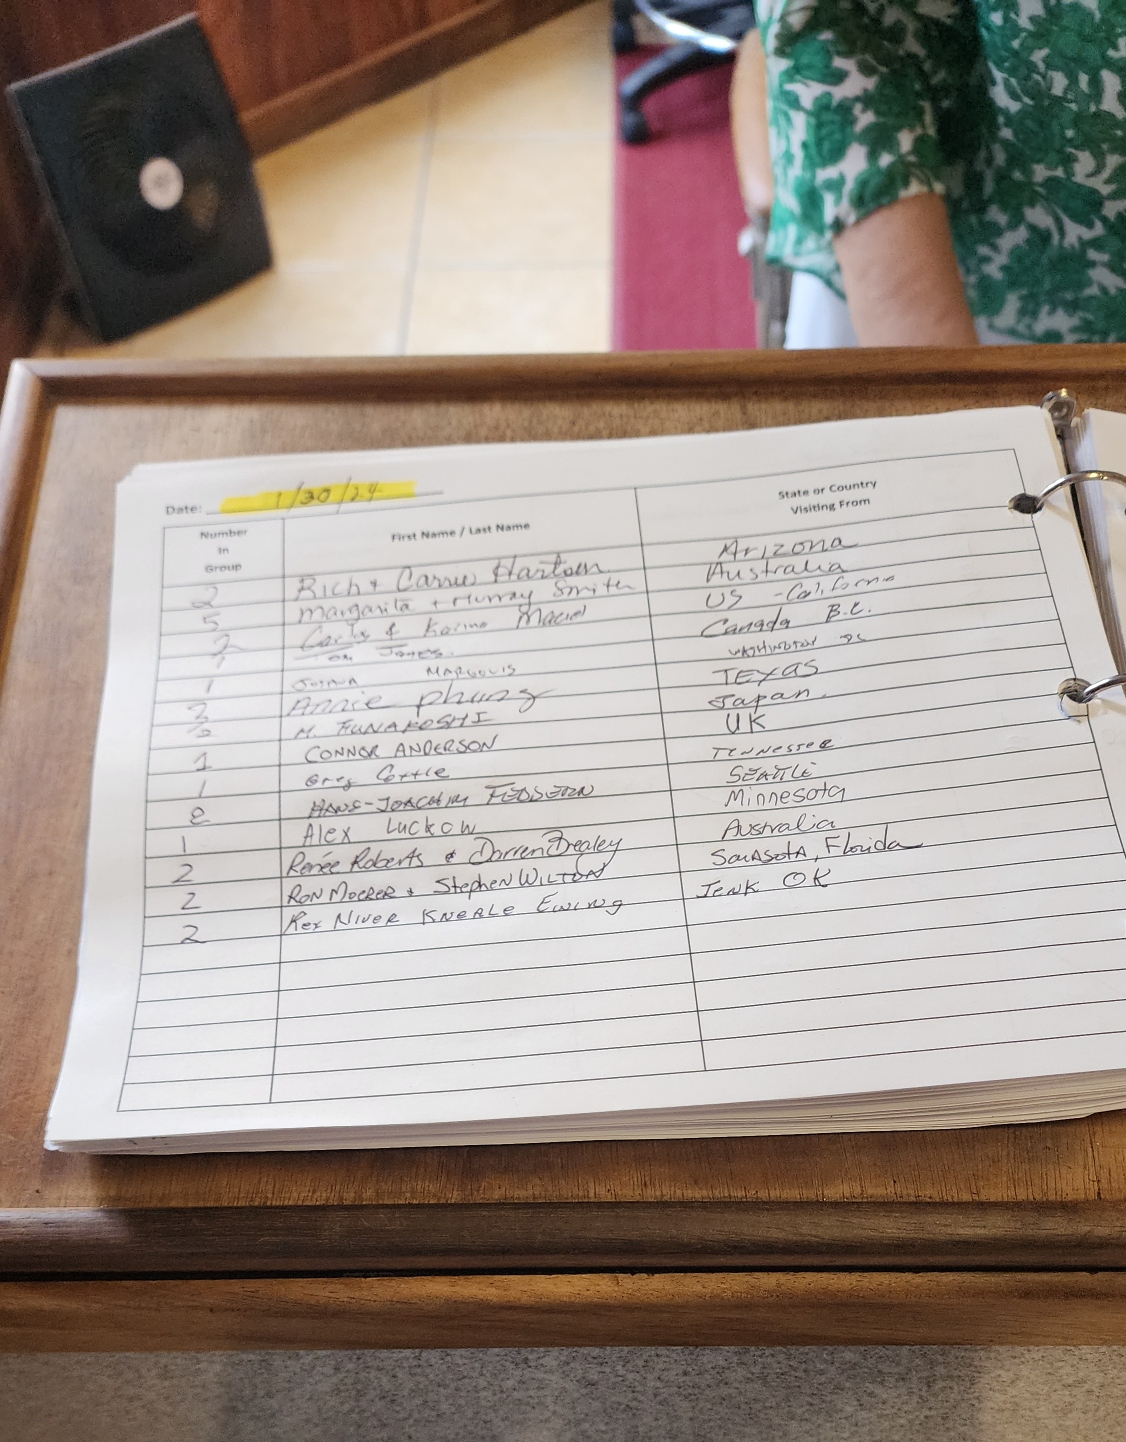 Date: 1/30/24
Number In Group
First Name / Last Name
State or Country Visiting From
2 Rich & Carrie Arizona
5 Margarita + Murray Smith Australia
2 & Karina Maciel US - California
1 Jones Canada B.C.
1 MARGOLIS WASHINGTON DC
3 Annie phung TEXAS
M. FUNAKOSHI Japan
1 CONNOR ANDERSON UK
1 Greg Cottle Tennessee
2 HANS-JOACHIM SEATTLE
1 Alex Luckow Minnesota
2 Renée Roberts & Darren Brealey Australia
2 RON & Stephen WILTON SARASOTA, Florida
2 Rex NIVER KNEALE Ewing JENK OK